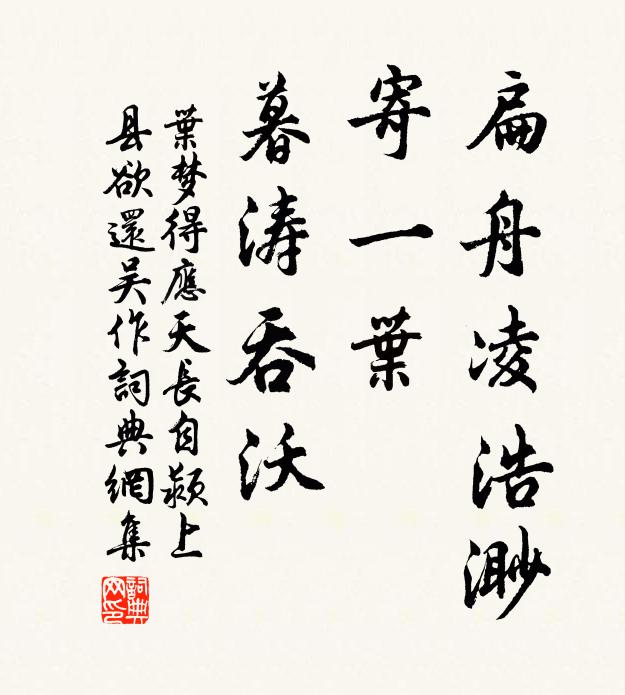 扁舟凌浩渺
寄一葉
暮涛吞沃
葉梦得應天長自颍上
县欲還吴作詞典網集
詞典網印